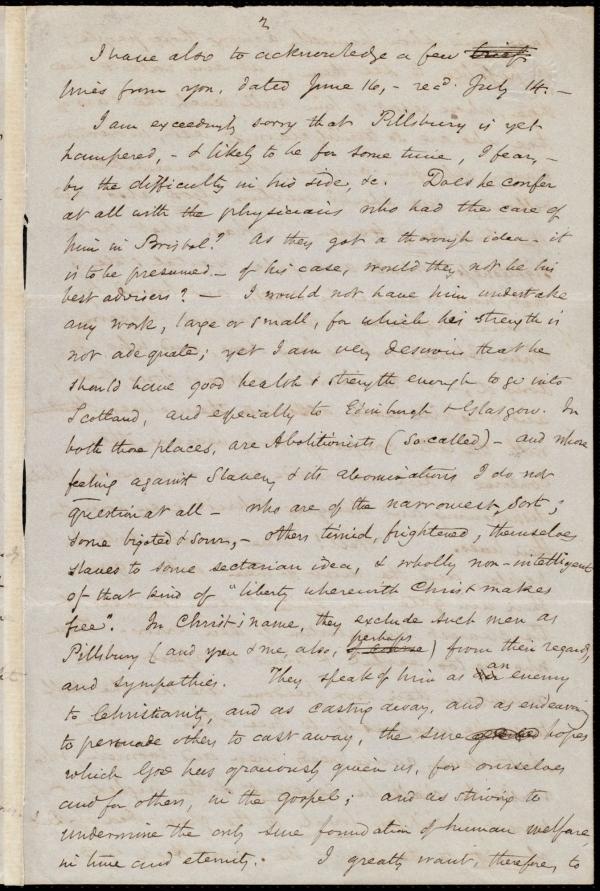 2
I have also to acknowledge a few brief
lines from you, dated June 16, - recd. July 14. -
I am exceedingly sorry that Pillsbury is yet
hampered, - & likely to be for some time, I fear, -
by the difficulty in his side, &c. Does he confer
at all with the physicians who had the care of
him in Bristol? As they got a thorough idea - it
is to be presumed - of his case, would they not be his
best advisers? - I would not have him undertake
any work, large or small, for which his strength is
not adequate; yet I am very desirous that he
should have good health & strength enough to go into
Scotland, and especially to Edinburgh & Glasgow. In
both those places, are Abolitionists (so-called) - and whose
feeling against Slavery & its abominations I do not
question at all - who are of the narrowest sort;
some bigoted & sour, - others timid, frightened, themselves
slaves to some sectarian idea, & wholly non-intelligent
of that kind of "liberty wherewith Christ makes
free". In Christ's name, they exclude such men as
perhaps
Pillsbury (and you & me, also, of course) from their regards,
and sympathies. They speak of him as an enemy
to Christianity, and as casting away, and as endeavoring
to persuade others to cast away, the sure hopes
which God has graciously given us, for ourselves
and for others, in the Gospel; and as striving to
undermine the only sure foundation of human welfare,
in time and eternity. I greatly want, therefore, to